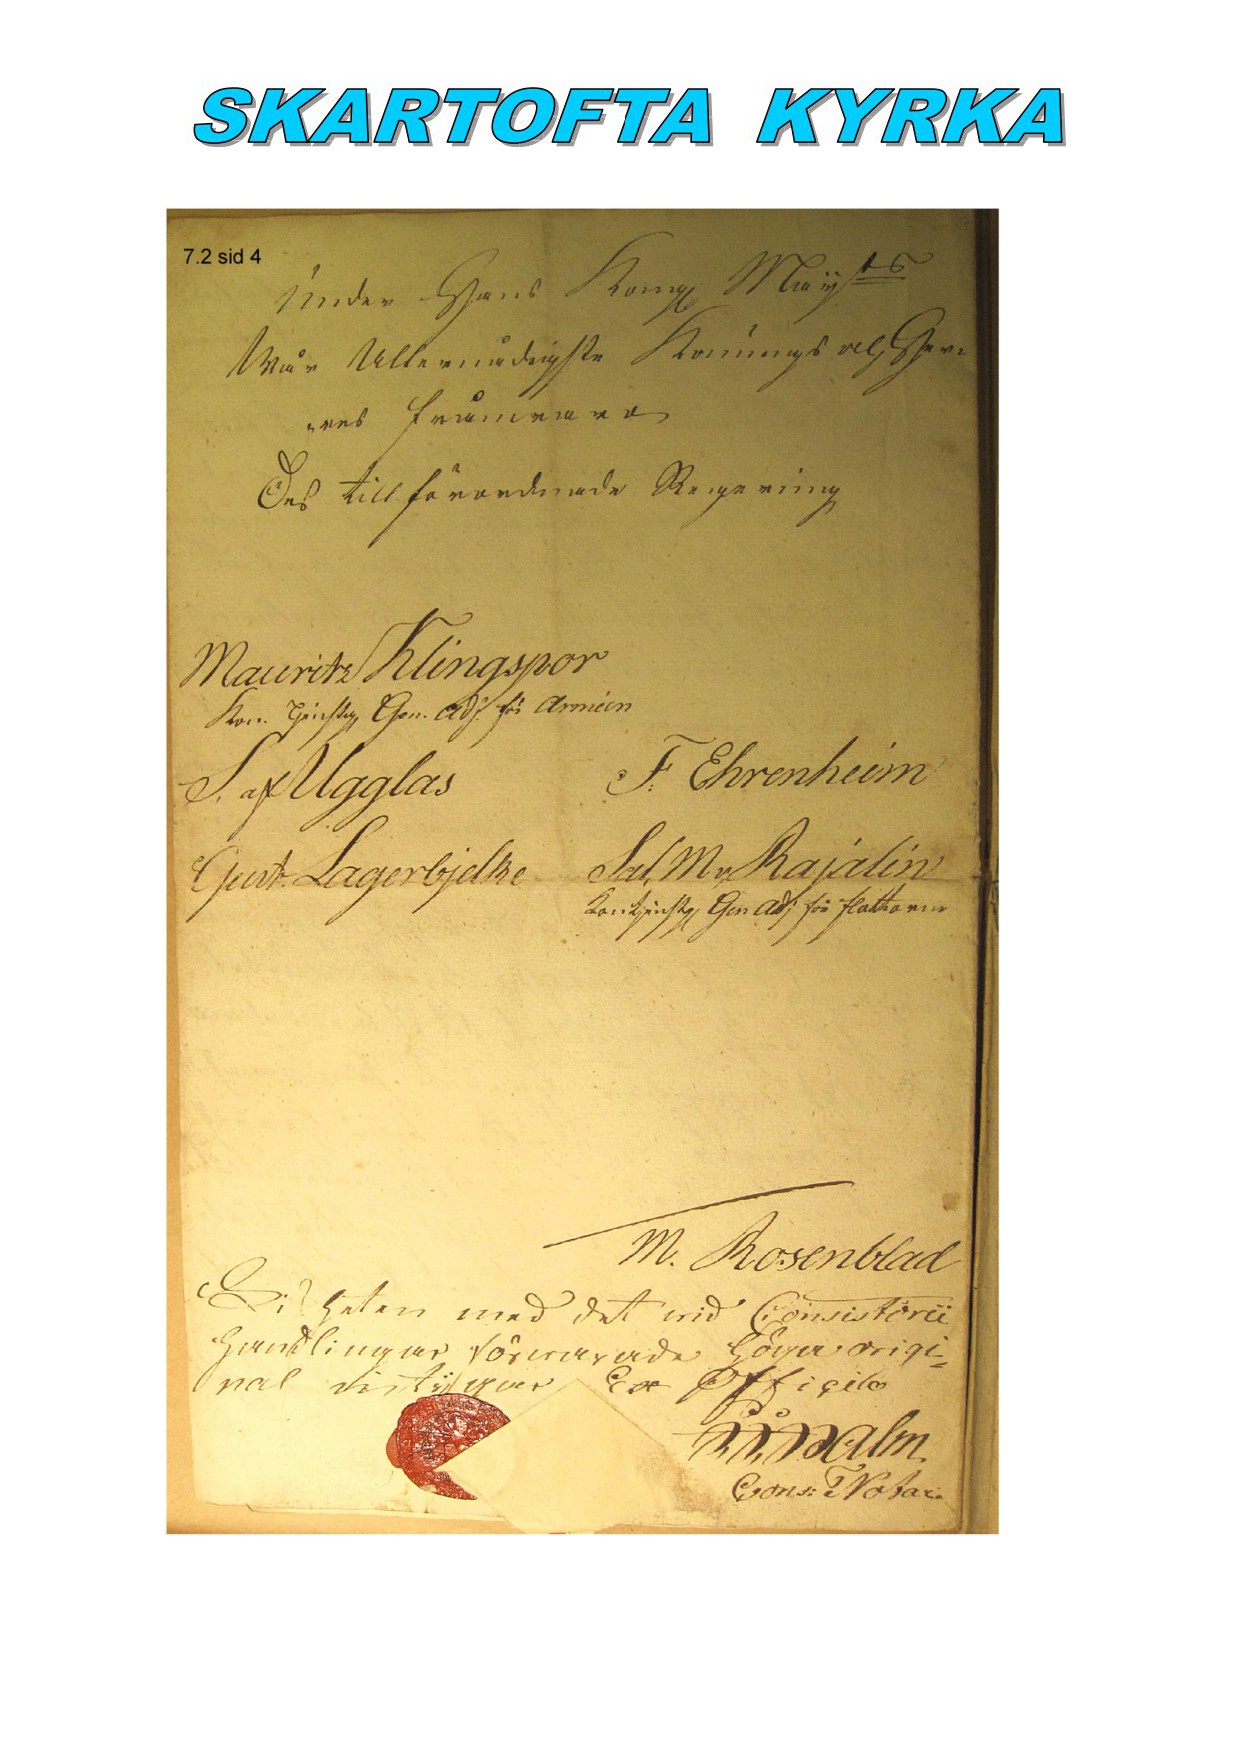 SKARTOFTA KYRKA
7.2 sid 4
Under Hans Kongl Maÿts
Wår Allernådigste Konungs och Her-
-res frånvaro
Des tillförordnade Regering
Mauritz Klingspor
Kon. tjenstg. Gen. Adj. för Arméen
S. af Ugglas
F. Ehrenheim
Gust. Lagerbjelke
Sal. M. v. Rajalin
Kon. tjenstg. Gen. Adj. för flottorne
M. Rosenblad
heten med det wid Consistorii
handlingar förwarade höga origi-
nal wistÿgar Ex Officio
Malm
Cons: Notar: